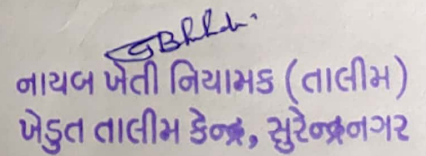 નાયબ ખેતી નિયામક (તાલીમ)
ખેડુત તાલીમ કેન્દ્ર, સુરેન્દ્રનગર